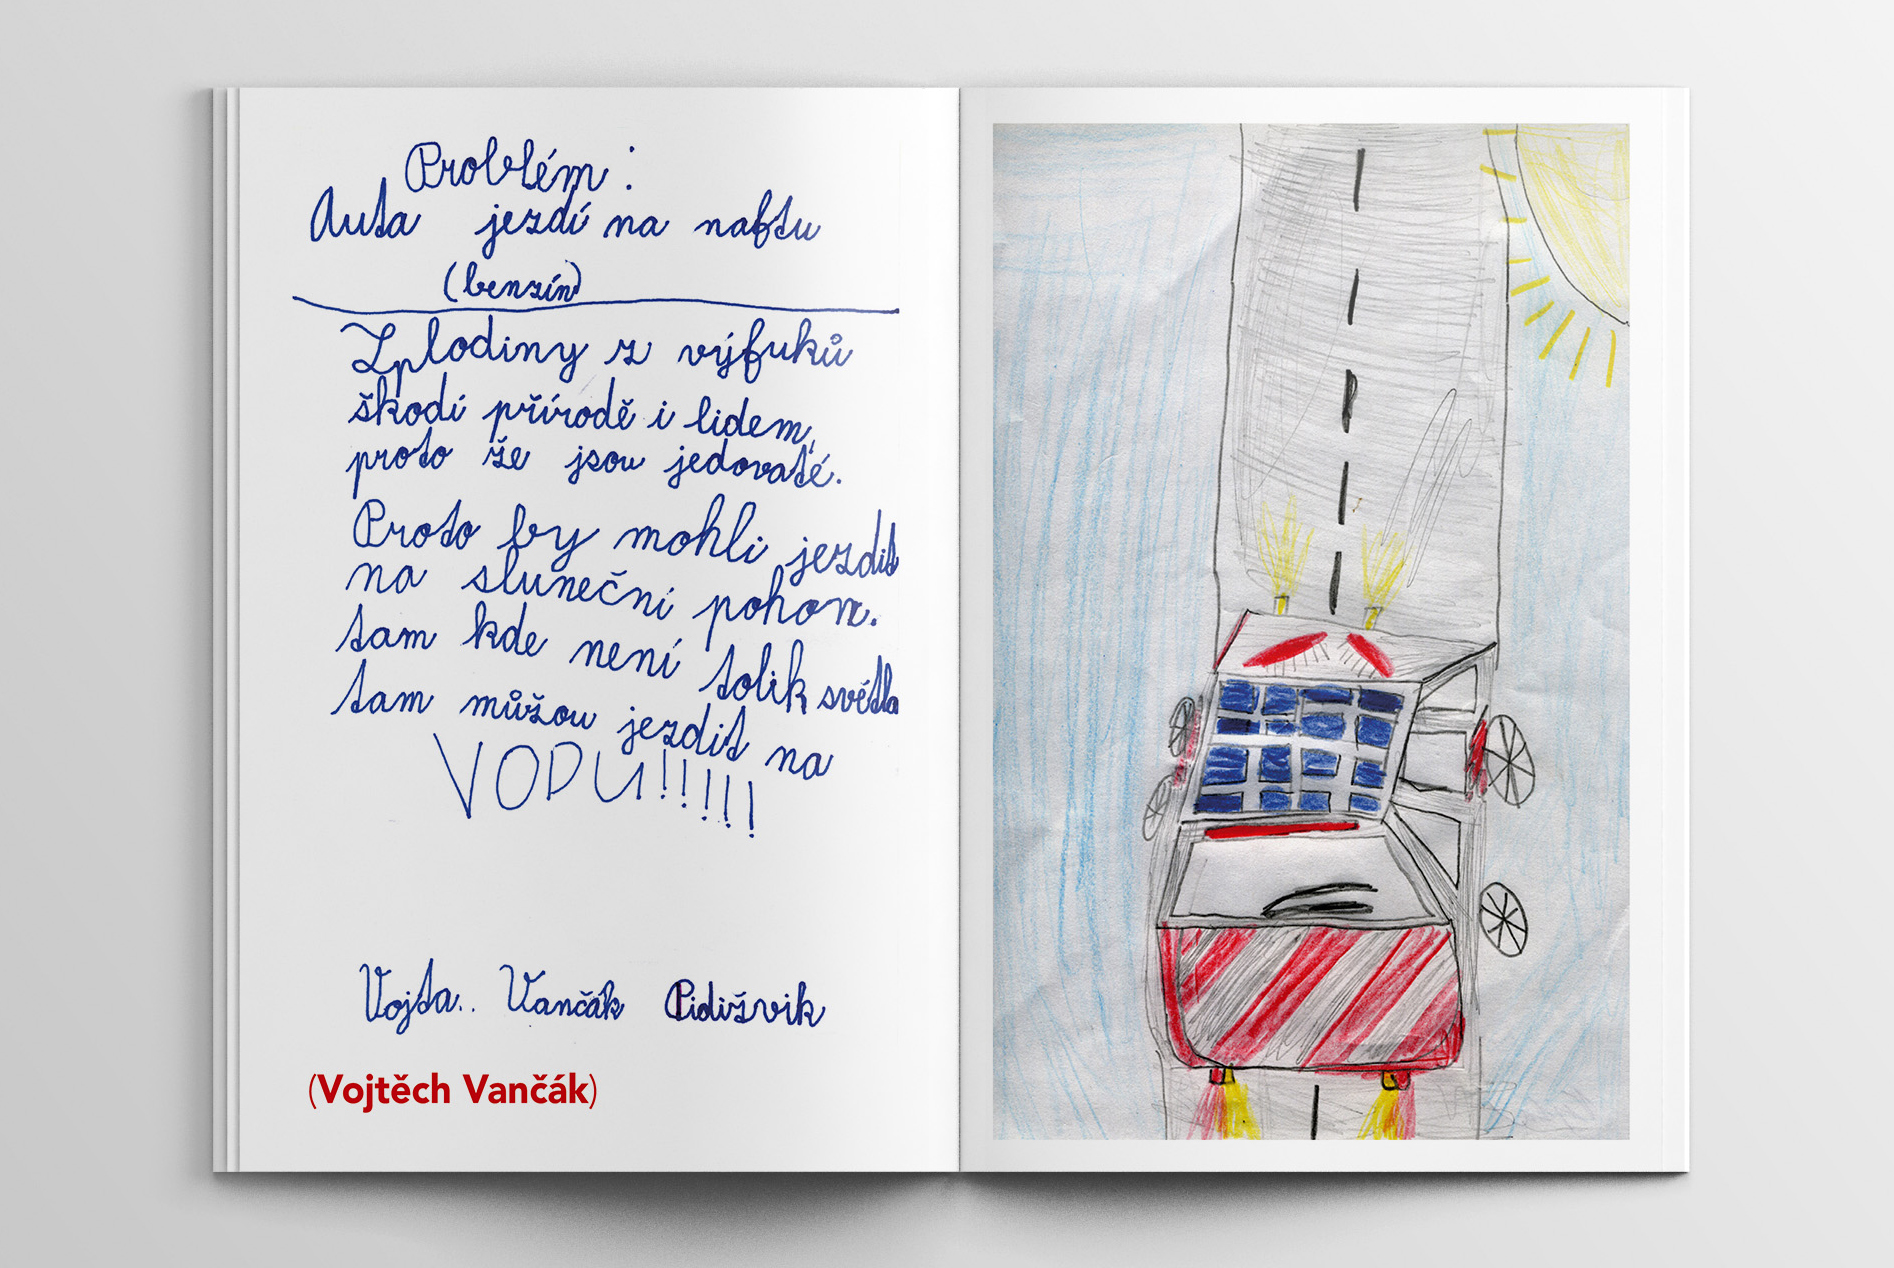 Problém:
Auta jezdí na naftu
(benzín)
Zplodiny z výfuků
škodí přírodě i lidem,
proto že jsou jedovaté.
Proto by mohli jezdit
na sluneční pohon.
tam kde není tolik světla
tam můžou jezdit na
VODU!!!!!
Vojta.. Vančák Pidižvik
(Vojtěch Vančák)